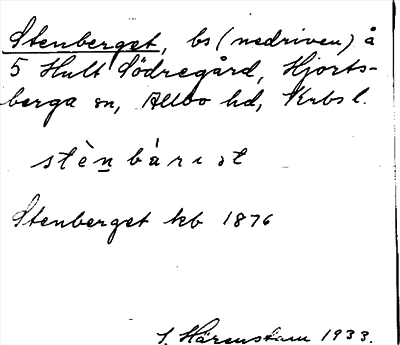 Stenberget, bs (nedriven) å
5 Hult Södregård, Hjorts-
berga sn, Allbo hd, Krbs l.
stè̱n bàrıɔt
Stenberget kb 1876
J. Härenstam 1933.